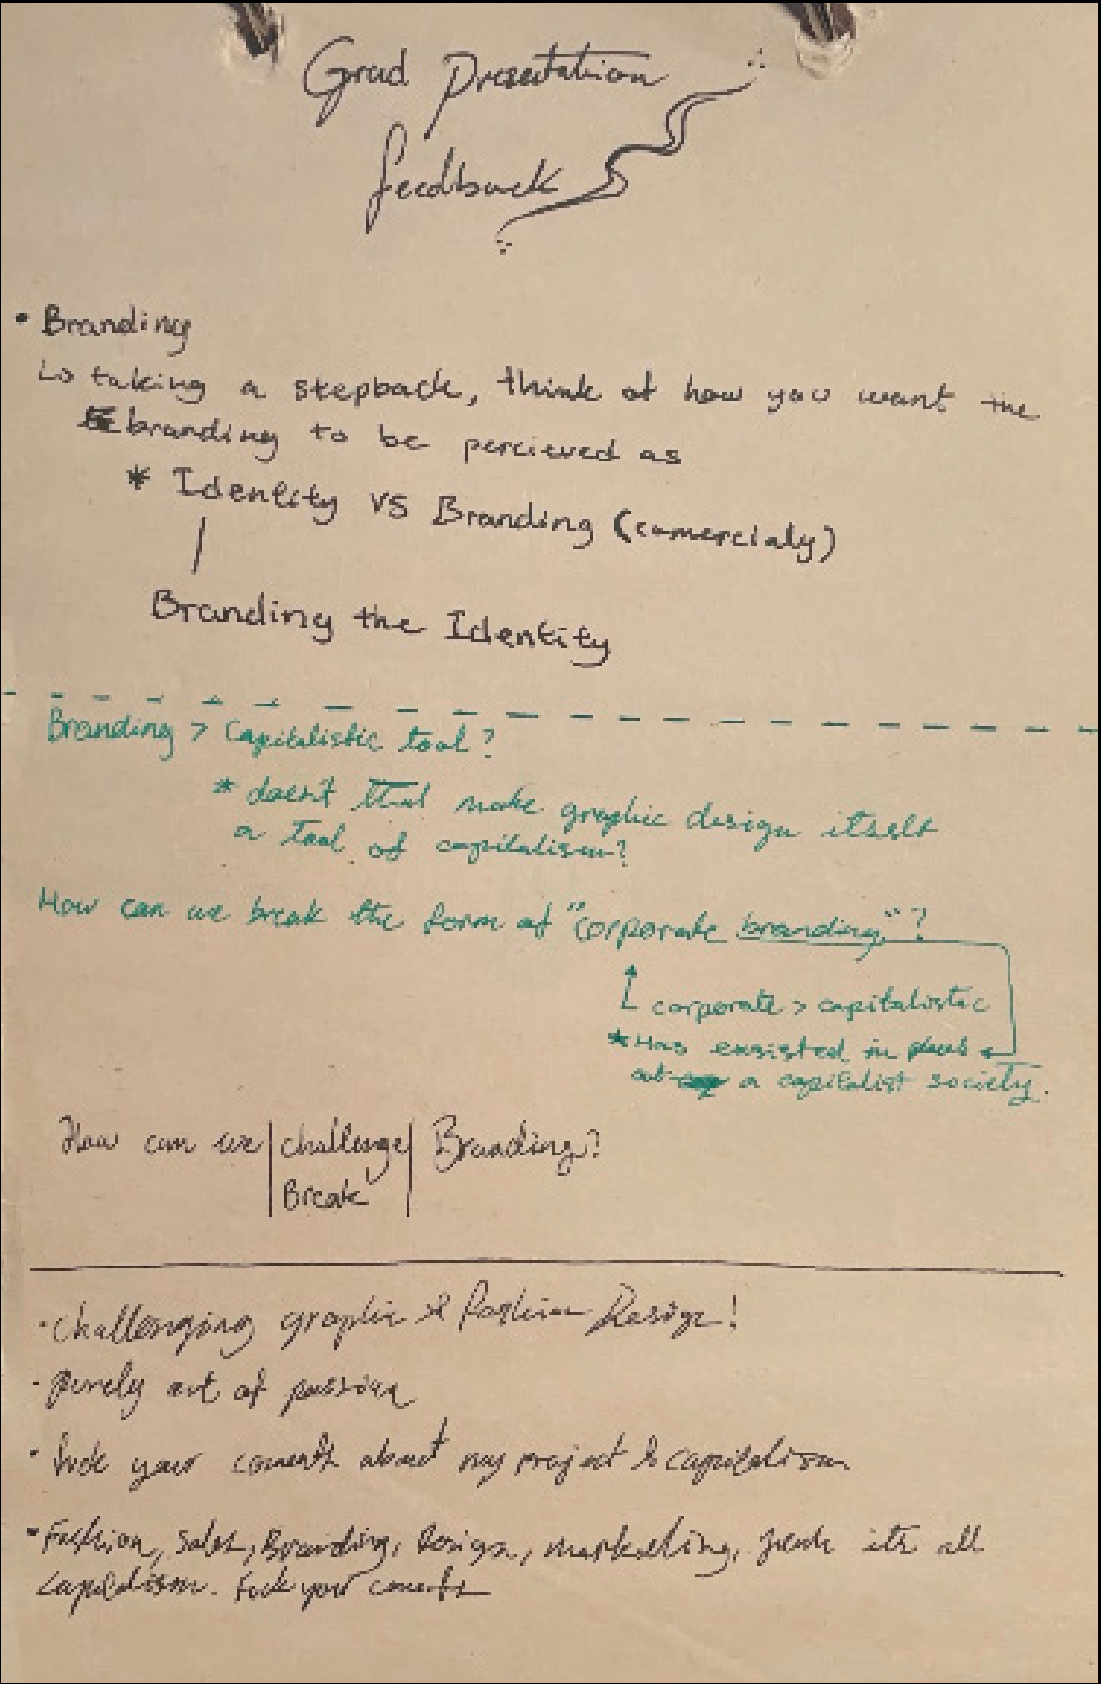 Grad Presentation
feedback
• Branding
↳ taking a stepback, think of how you want the
branding to be percieved as
* Identity vs Branding (comercialy)
Branding the Identity
Branding > Capitalistic tool?
* doesn't that make graphic design itself
a tool of capitalism?
How can we break the form of "corporate branding"?
corporate > capitalistic
* Has exsisted in
a capitalist society.
How can we | challenge | Branding?
Break
• Challenging graphic & Fashion Design!
• purely out of passion
• your about my project & capitalism
• Fashion, Sales, Branding, Design, marketing, yeah its all
capitalism. fuck your